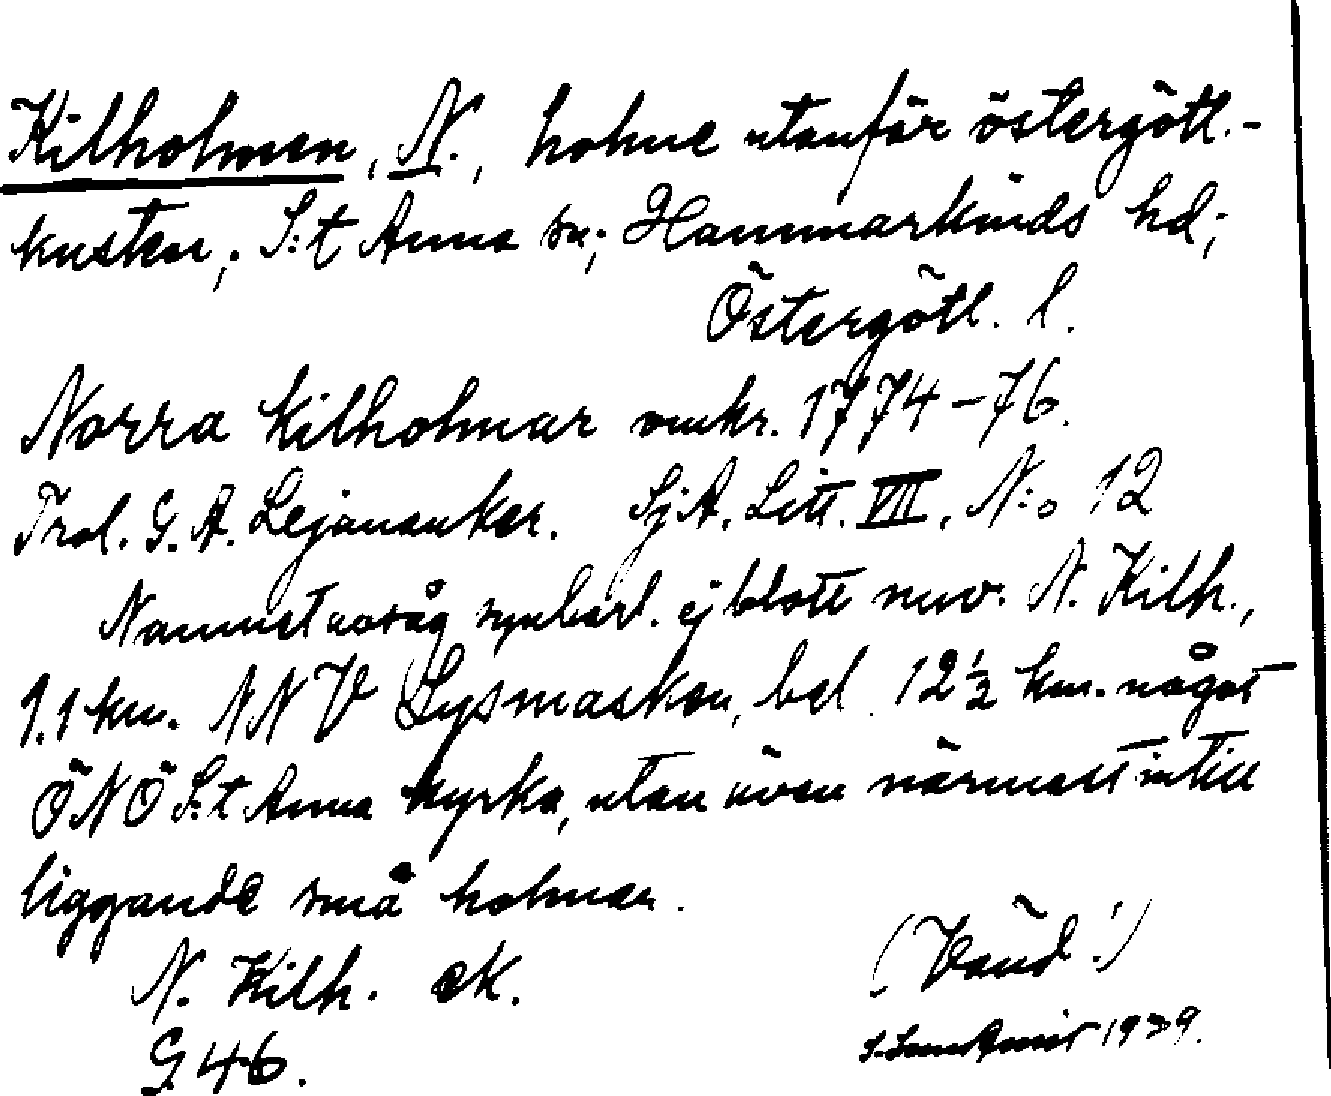 Kilholmen, N., holme utanför östergötl.-
kusten; S:t Anna sn; Hammarkinds hd;
Östergötl. l.
Norra Kilholmar omkr. 1774-76.
Trol. G. A. Lejonanker. SjA. Litt. VII, N:o 12
Namnet avsåg synbarl. ej blott nuv. N. Kilh.,
1.1 km. NNV Lysmasken, bel. 12½ km. något
ÖNÖ S:t Anna kyrka, utan även närmast intill
liggande små holmar.
N. Kilh. ek. (Vänd!)
G 46. 1939.